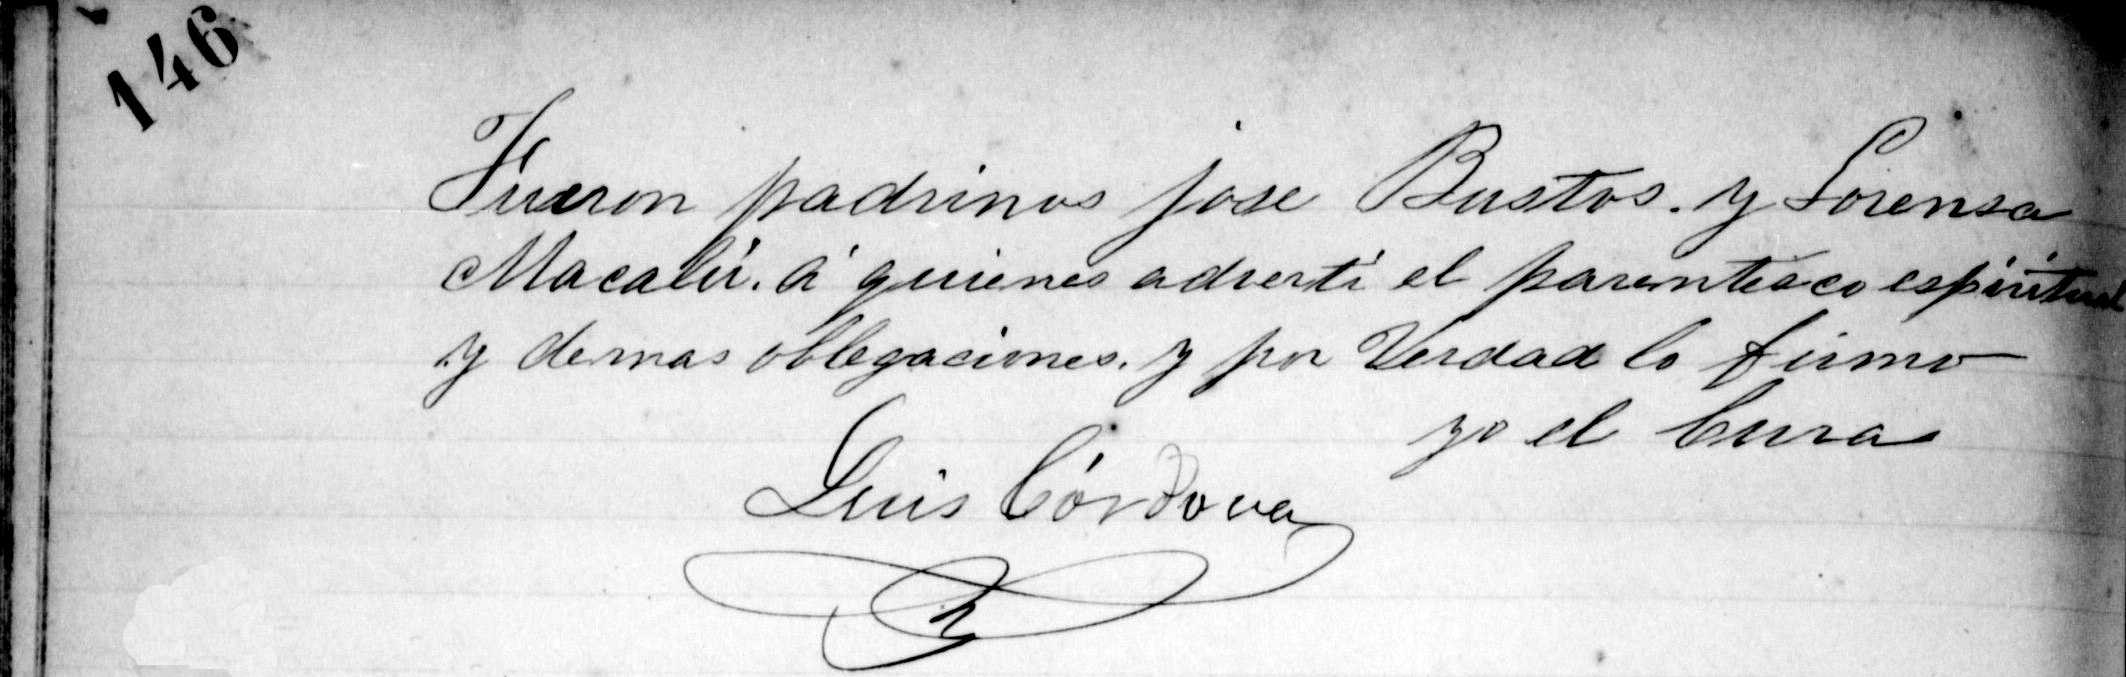 146
Fueron padrinos jose Bustos. y Lorensa
Macalú. á quienes adverti el parentesco espiritual
y demas oblegaciones. y por Verdad lo firmo
yo el Cura
Luis Córdova